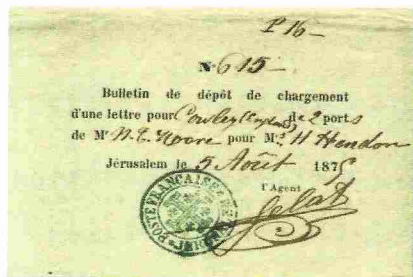 P 16 —
N° 615 —
Bulletin de dépôt de chargement
d'une lettre pour Cowley (England) de 2 ports
de Mr N. T. Moore pour Mrs H Hendon
Jérusalem le 5 Août 1875
l'Agent
Gelat
POSTE FRANÇAISE
JERUSALEM